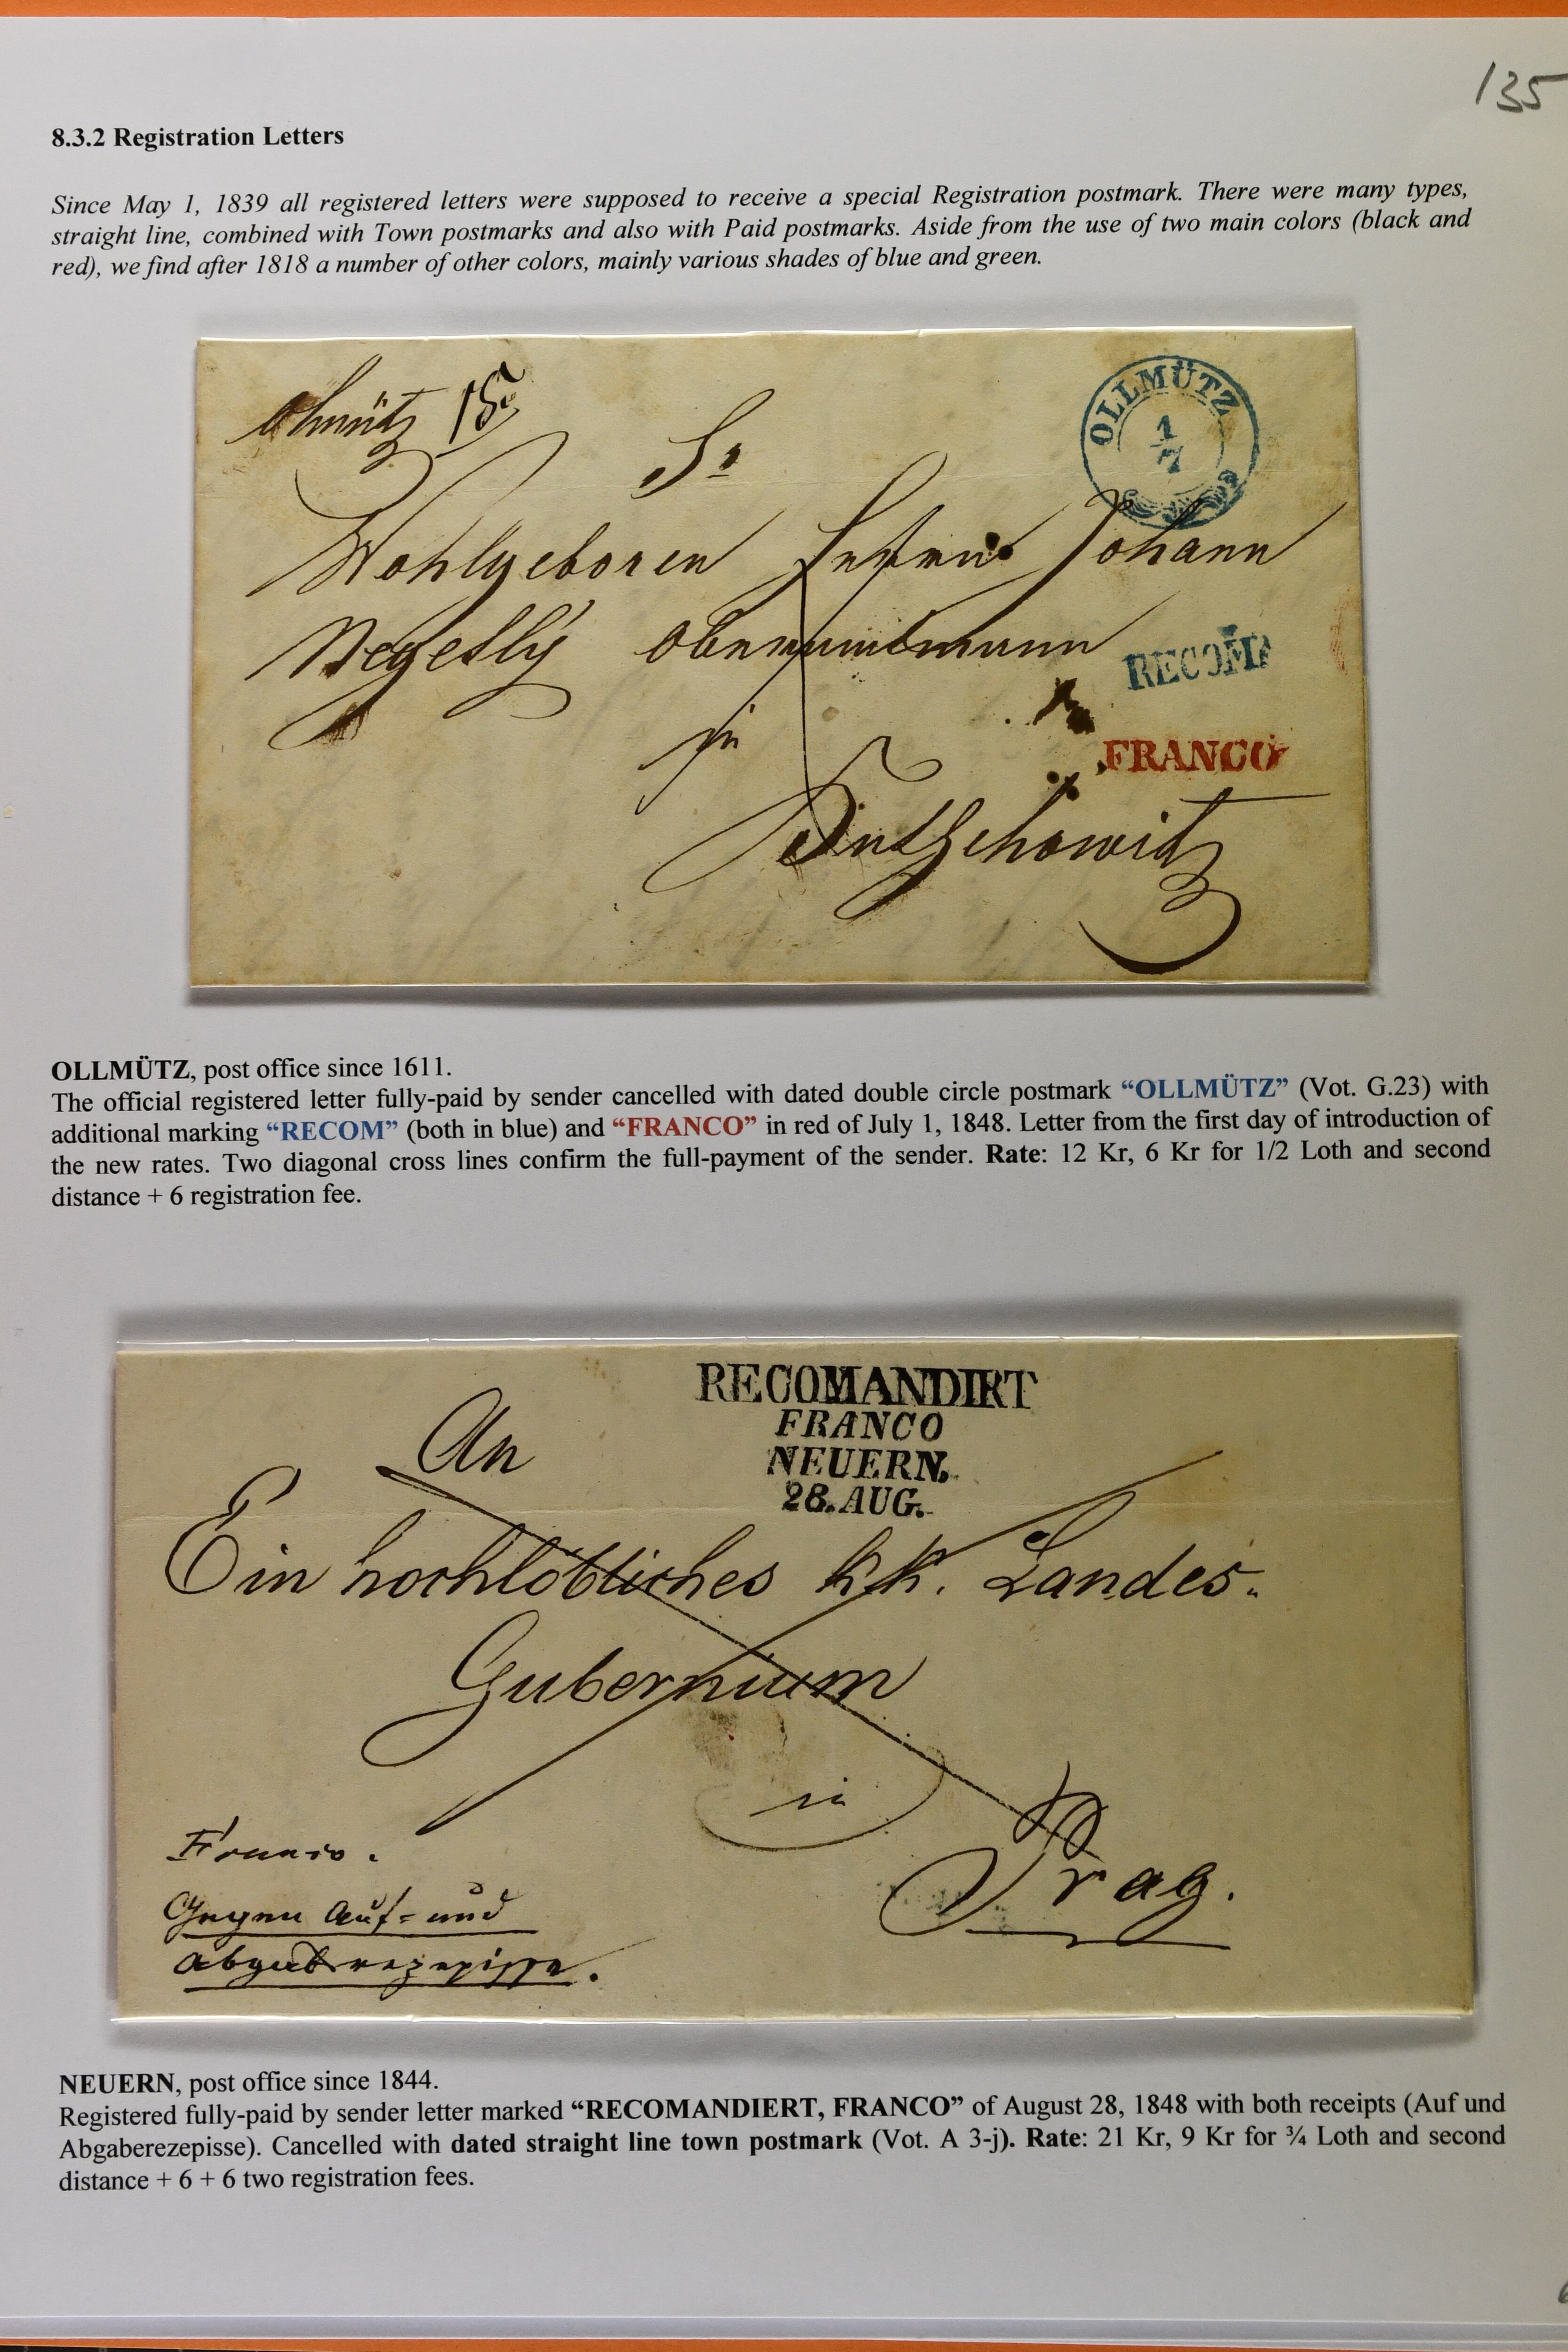 135
8.3.2 Registration Letters
Since May 1, 1839 all registered letters were supposed to receive a special Registration postmark. There were many types,
straight line, combined with Town postmarks and also with Paid postmarks. Aside from the use of two main colors (black and
red), we find after 1818 a number of other colors, mainly various shades of blue and green.
OLLMÜTZ
1
7
Sr
Wohlgeboren Johann
Oberamtmann
RECOM
zu
FRANCO
OLLMÜTZ, post office since 1611.
The official registered letter fully-paid by sender cancelled with dated double circle postmark “OLLMÜTZ” (Vot. G.23) with
additional marking “RECOM” (both in blue) and “FRANCO” in red of July 1, 1848. Letter from the first day of introduction of
the new rates. Two diagonal cross lines confirm the full-payment of the sender. Rate: 12 Kr, 6 Kr for 1/2 Loth and second
distance + 6 registration fee.
RECOMANDIRT
FRANCO
NEUERN.
28. AUG.
An
Ein hochlöbliches k.k. Landes-
Gubernium
in
Prag.
Franco.
Gegen Auf- und
Abgabsrezepisse.
NEUERN, post office since 1844.
Registered fully-paid by sender letter marked “RECOMANDIERT, FRANCO” of August 28, 1848 with both receipts (Auf und
Abgaberezepisse). Cancelled with dated straight line town postmark (Vot. A 3-j). Rate: 21 Kr, 9 Kr for ¾ Loth and second
distance + 6 + 6 two registration fees.